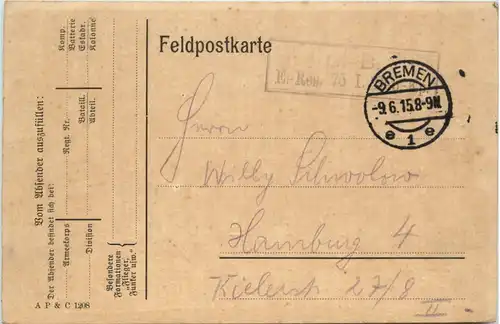 Feldpostkarte
BREMEN
-9.6.15.8-9N.
e 1 e
Vom Absender auszufüllen:
Der Absender befindet sich bei:
Armeekorps
Division
Regt. Nr.
Bataill.
Abteil.
Komp.
Batterie
Eskadr.
Kolonne
Besondere
Formationen
"Flieger,
Funker usw."
Herrn
Willy Schwolow
Hamburg 4
Kielerst 27/8
II
A P & C 1208